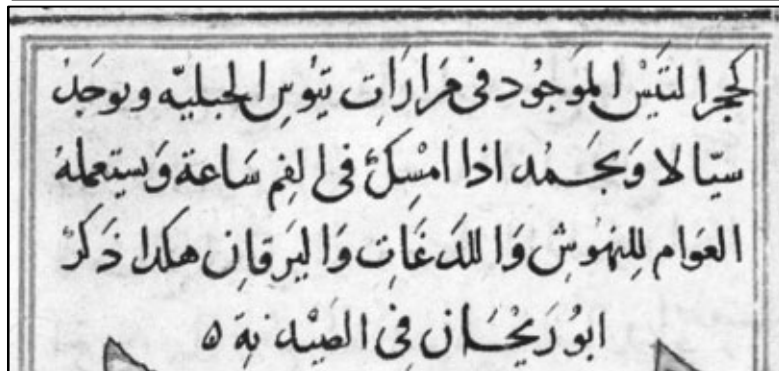 كحجر التَيْس الموَجُود فى مَرارَات تيُوسِ الجبليّه ويوجَدُ
سيّالا وَيجَمُد اذا امْسِكَ فى الفِم سَاعة وَيستعملهُ
العَوام لِلنهُوشِ وَاللدَغَاتِ وَاليَرقانِ هكدا ذَكرَ
ابوُ رَيْحَانِ فِى الصَيْدنَة ه